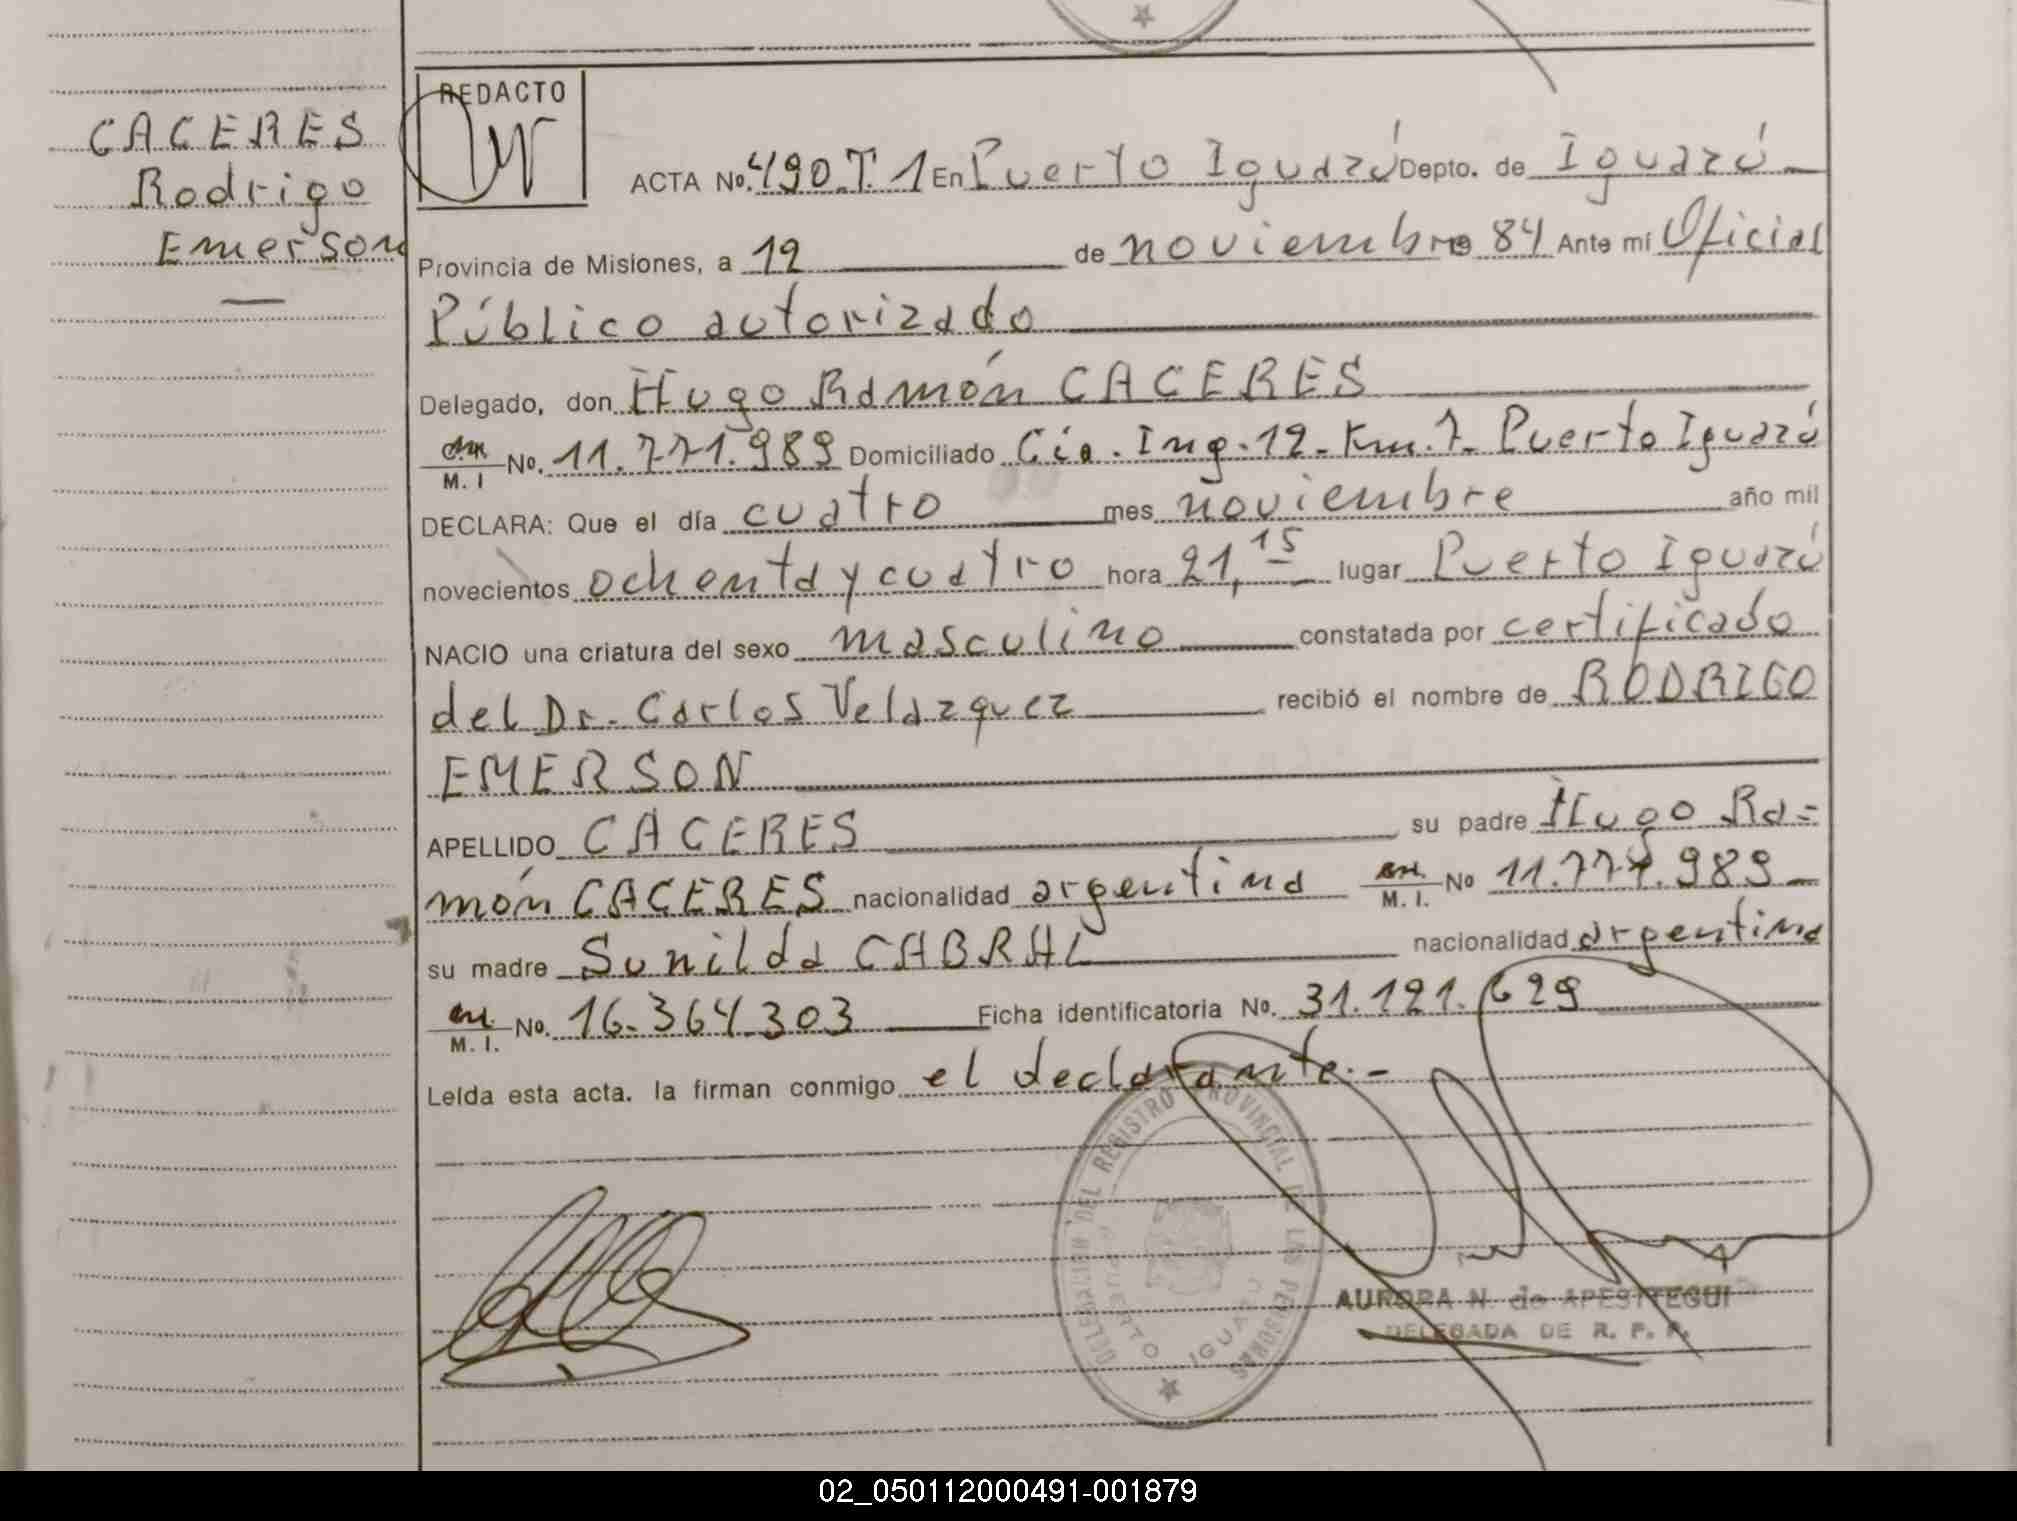 CACERES
Rodrigo
Emerson
REDACTO
ACTA No. 490 T. 1 En Puerto Iguazú Depto. de Iguazú
Provincia de Misiones, a 12 de noviembre 84 Ante mí Oficial
Público autorizado
Delegado, don Hugo Ramón CACERES
M. I No. 11.771.989 Domiciliado Cía. Ing. 12 - Km. 7 - Puerto Iguazú
DECLARA: Que el día cuatro mes noviembre año mil
novecientos ochenta y cuatro hora 21,15 lugar Puerto Iguazú
NACIO una criatura del sexo masculino constatada por certificado
del Dr. Carlos Velazquez recibió el nombre de RODRIGO
EMERSON
APELLIDO CACERES su padre Hugo Ra=
món CACERES nacionalidad argentina M. I. No 11.771.989
su madre Sunilda CABRAL nacionalidad argentina
M. I. No. 16.364.303 Ficha identificatoria No. 31.121.629
Leída esta acta. la firman conmigo el declarante.-
DELEGACION DEL REGISTRO PROVINCIAL DE LAS PERSONAS
PUERTO IGUAZU
AURORA N. de APESTEGUI
DELEGADA DE R. P. P.
02_050112000491-001879